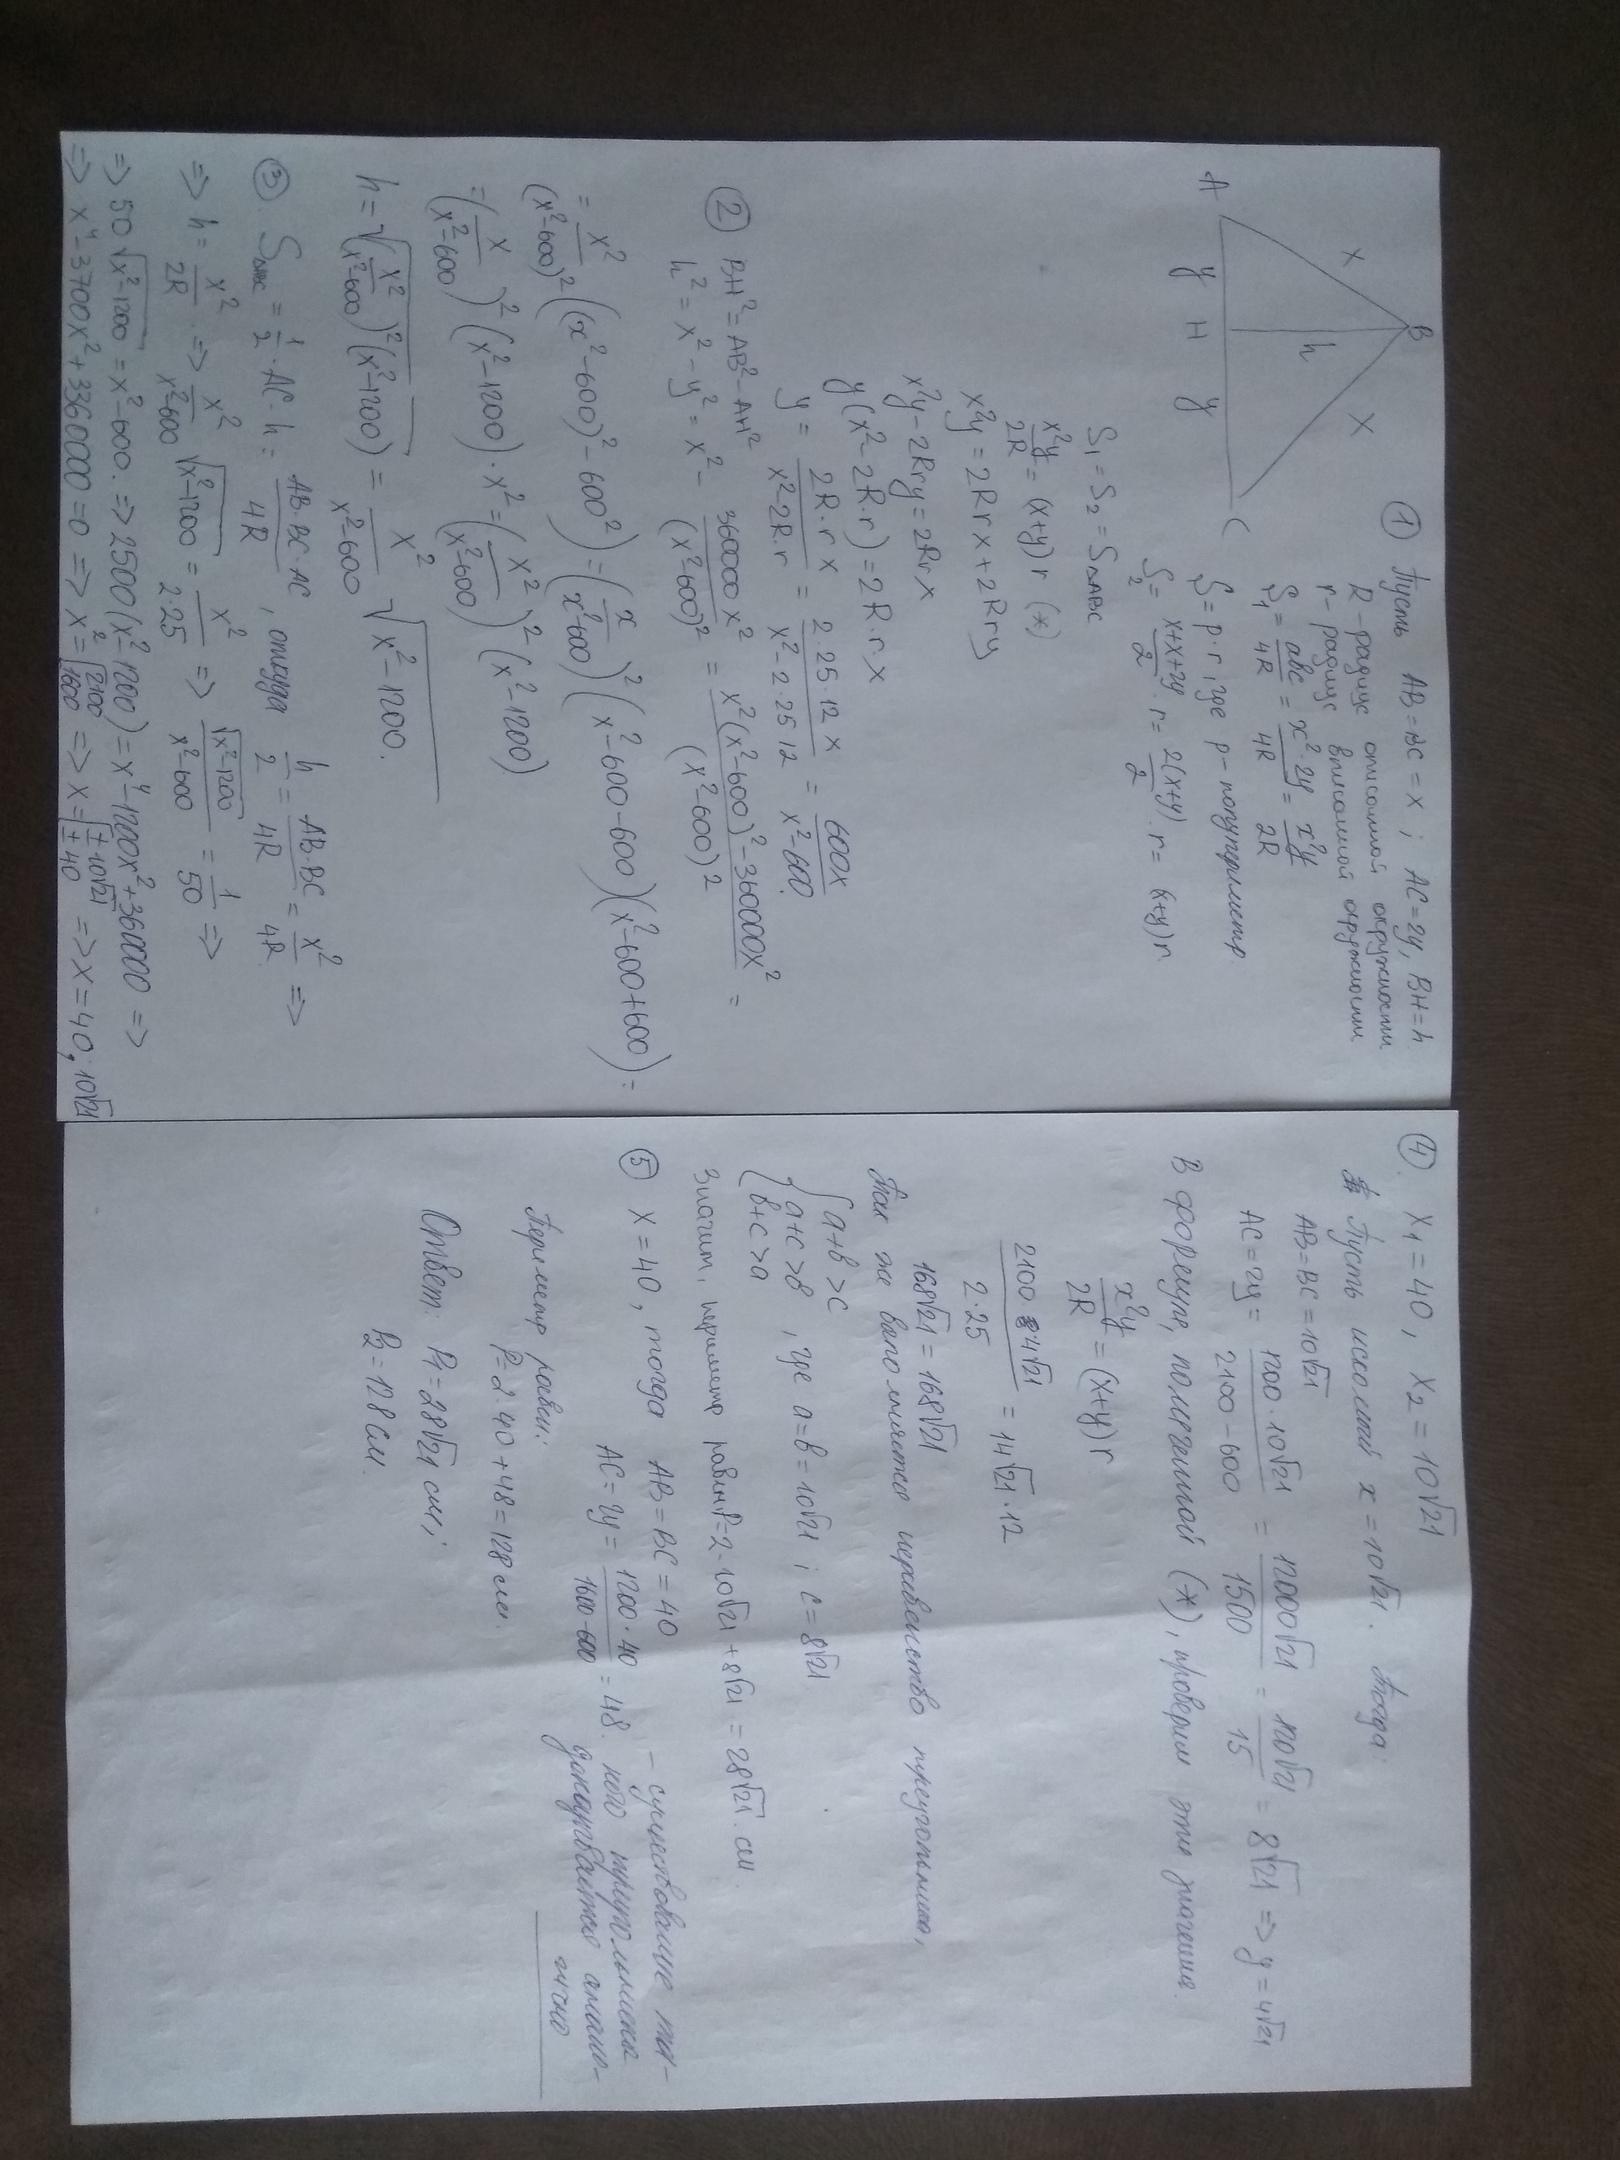 B
x
x
h
A
y
H
y
C
① Пусть AB=BC=x; AC=2y, BH=h
R - радиус описанной окружности
r - радиус вписанной окружности
S₁ = abc/4R = x²·2y/4R = x²y/2R
S₂ = p·r, где p - полупериметр
S₂ = (x+x+2y)/2 · r = 2(x+y)/2 · r = (x+y)r
S₁ = S₂ = S△ABC
x²y/2R = (x+y)r (*)
x²y = 2Rrx + 2Rry
x²y - 2Rry = 2Rrx
y(x² - 2R·r) = 2R·r x
y = 2R·r x/(x²-2R·r) = 2·25·12 x/(x²-2·25·12) = 600x/(x²-600).
② BH² = AB² - AH²
h² = x² - y² = x² - 360000x²/(x²-600)² = (x²(x²-600)² - 360000x²)/(x²-600)² =
= x²/(x²-600)² ((x²-600)² - 600²) = (x/(x²-600))² (x²-600-600)(x²-600+600) =
= (x/(x²-600))² (x²-1200)·x² = (x²/(x²-600))² (x²-1200)
h = √((x²/(x²-600))² (x²-1200)) = x²/(x²-600) √(x²-1200).
③. S△ABC = 1/2 · AC · h = AB·BC·AC/4R, откуда h/2 = AB·BC/4R = x²/4R. =>
=> h = x²/2R. => x²/(x²-600) √(x²-1200) = x²/2·25 => √(x²-1200)/(x²-600) = 1/50 =>
=> 50√(x²-1200) = x²-600. => 2500(x²-1200) = x⁴-1200x²+360000 =>
=> x⁴-3700x²+3360000=0 => x² = [2100 1600 => x = [±10√21 ±40 => x=40, 10√21
④. x₁ = 40, x₂ = 10√21
Пусть искомый x = 10√21. Тогда:
AB = BC = 10√21
AC = 2y = 1200·10√21/(2100-600) = 12000√21/1500 = 120√21/15 = 8√21 => y = 4√21
В формуле, полученной (*), проверим эти значения.
x²y/2R = (x+y)r
2100·4√21/2·25 = 14√21·12
168√21 = 168√21
Так же выполняется неравенство треугольника,
{ a+b>c
a+c>b , где a=b=10√21; c=8√21
b+c>a
Значит, периметр равен P=2·10√21+8√21 = 28√21 см.
⑤ x = 40, тогда AB = BC = 40
AC = 2y = 1200·40/(1600-600) = 48.
- существование та-
кого треугольника
доказывается анало-
гично
Периметр равен:
P=2·40+48=128 см.
Ответ: P₁=28√21 см;
P₂=128 см.